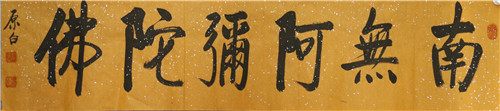 南無阿彌陀佛
原白